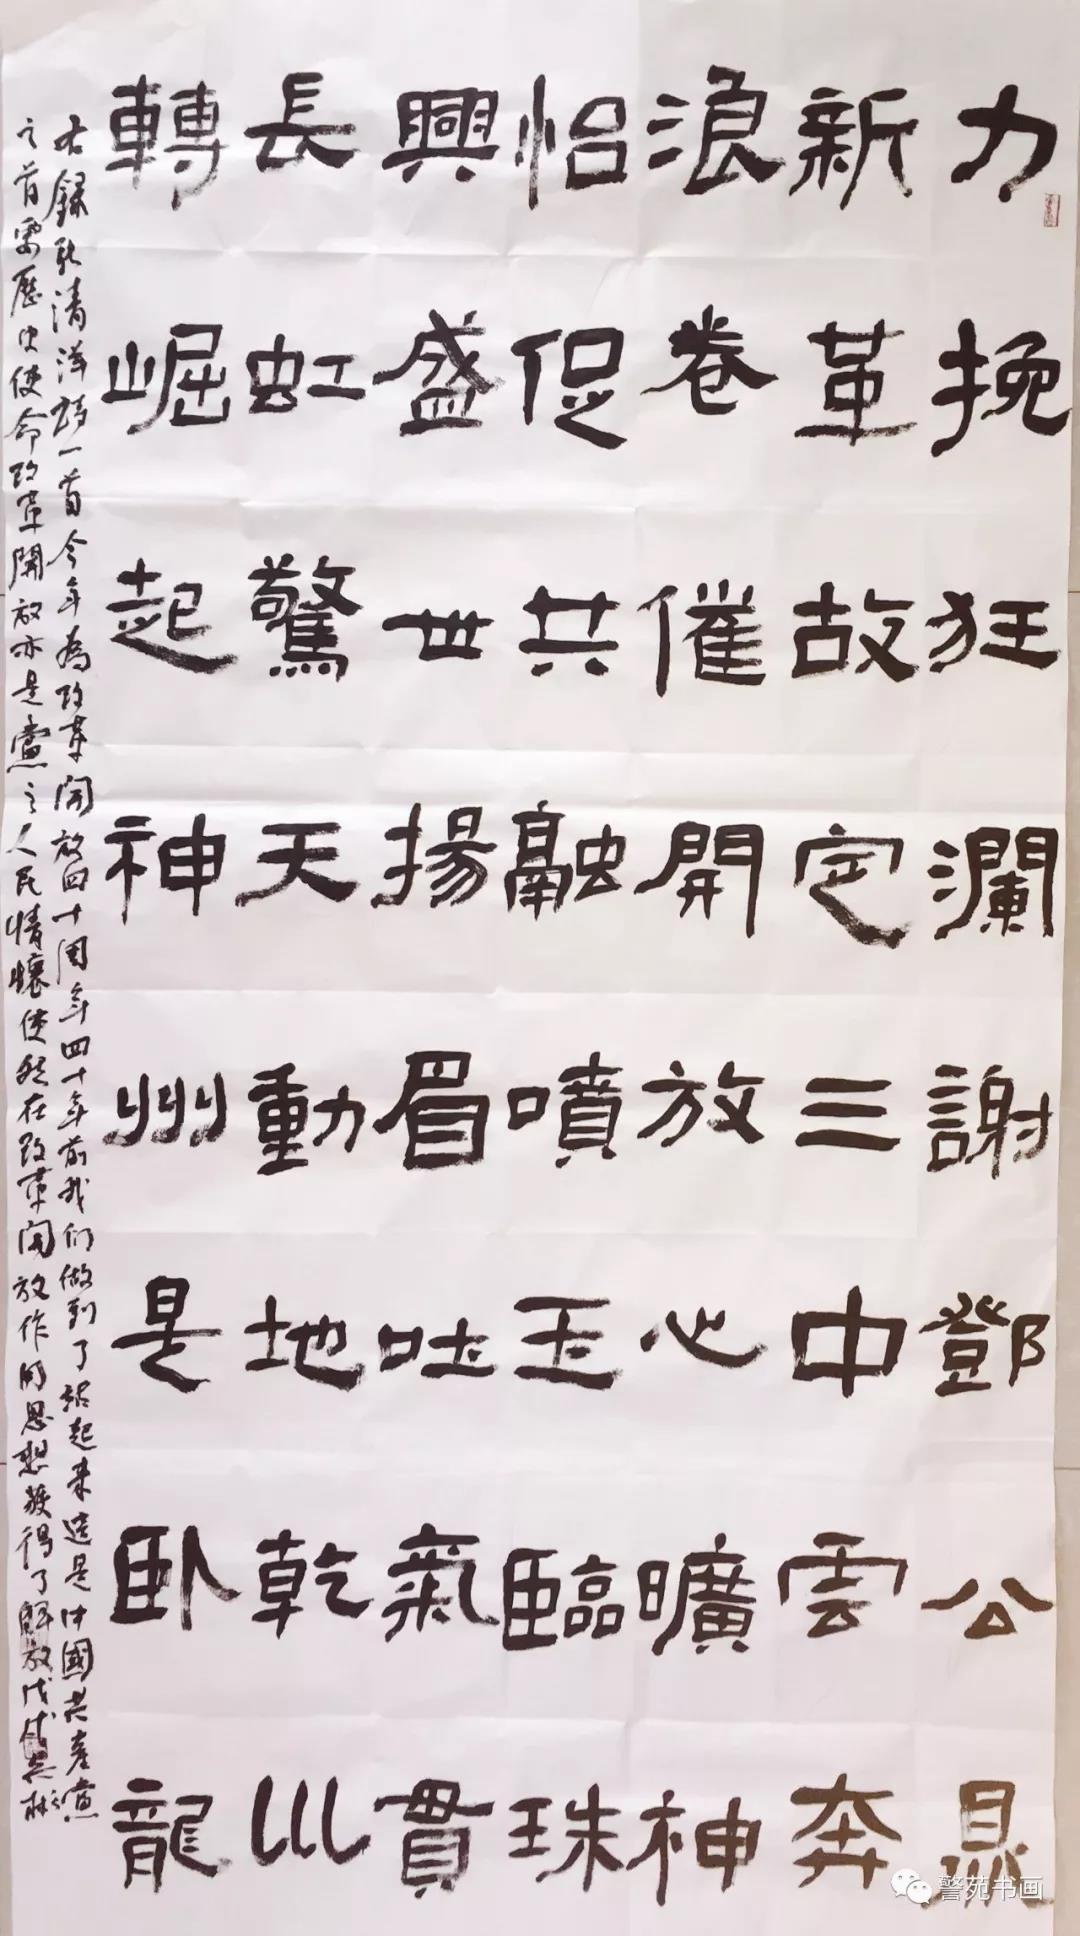 力挽狂瀾謝鄧公鼎
新革故定三中雲奔
浪卷催開放心曠神
怡促共融噴玉臨珠
興盛世揚眉吐氣貫
長虹驚天動地乾川
轉崛起神州是卧龍
右錄耿清洋詩一首今年為改革開放四十周年四十年前我们做到了站起来這是中國共產黨
之首要歷史使命改革開放亦是黨之人民情懷使然在改革開放作用思想獲得了解放戊戌吴彬
警苑书画